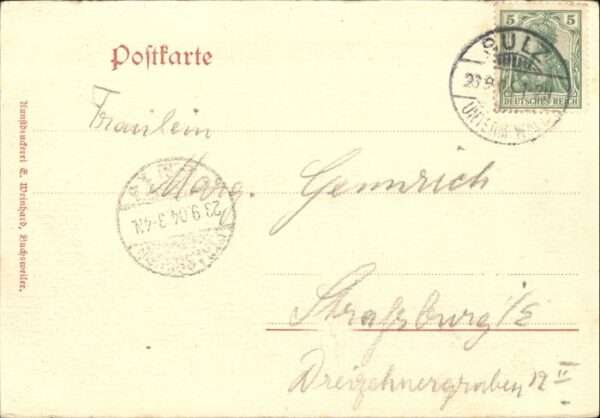 Postkarte
5 5
DEUTSCHES REICH
SULZ
23 9
UNTERM WALD
Fräulein
Marg. Gemrich
23 9.04 3-4N
Strassburg i/E
Dreizehnergraben 12 II
Kunstdruckerei E. Weinhard, Buchsweiler.